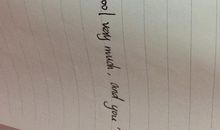 ool very much, and you